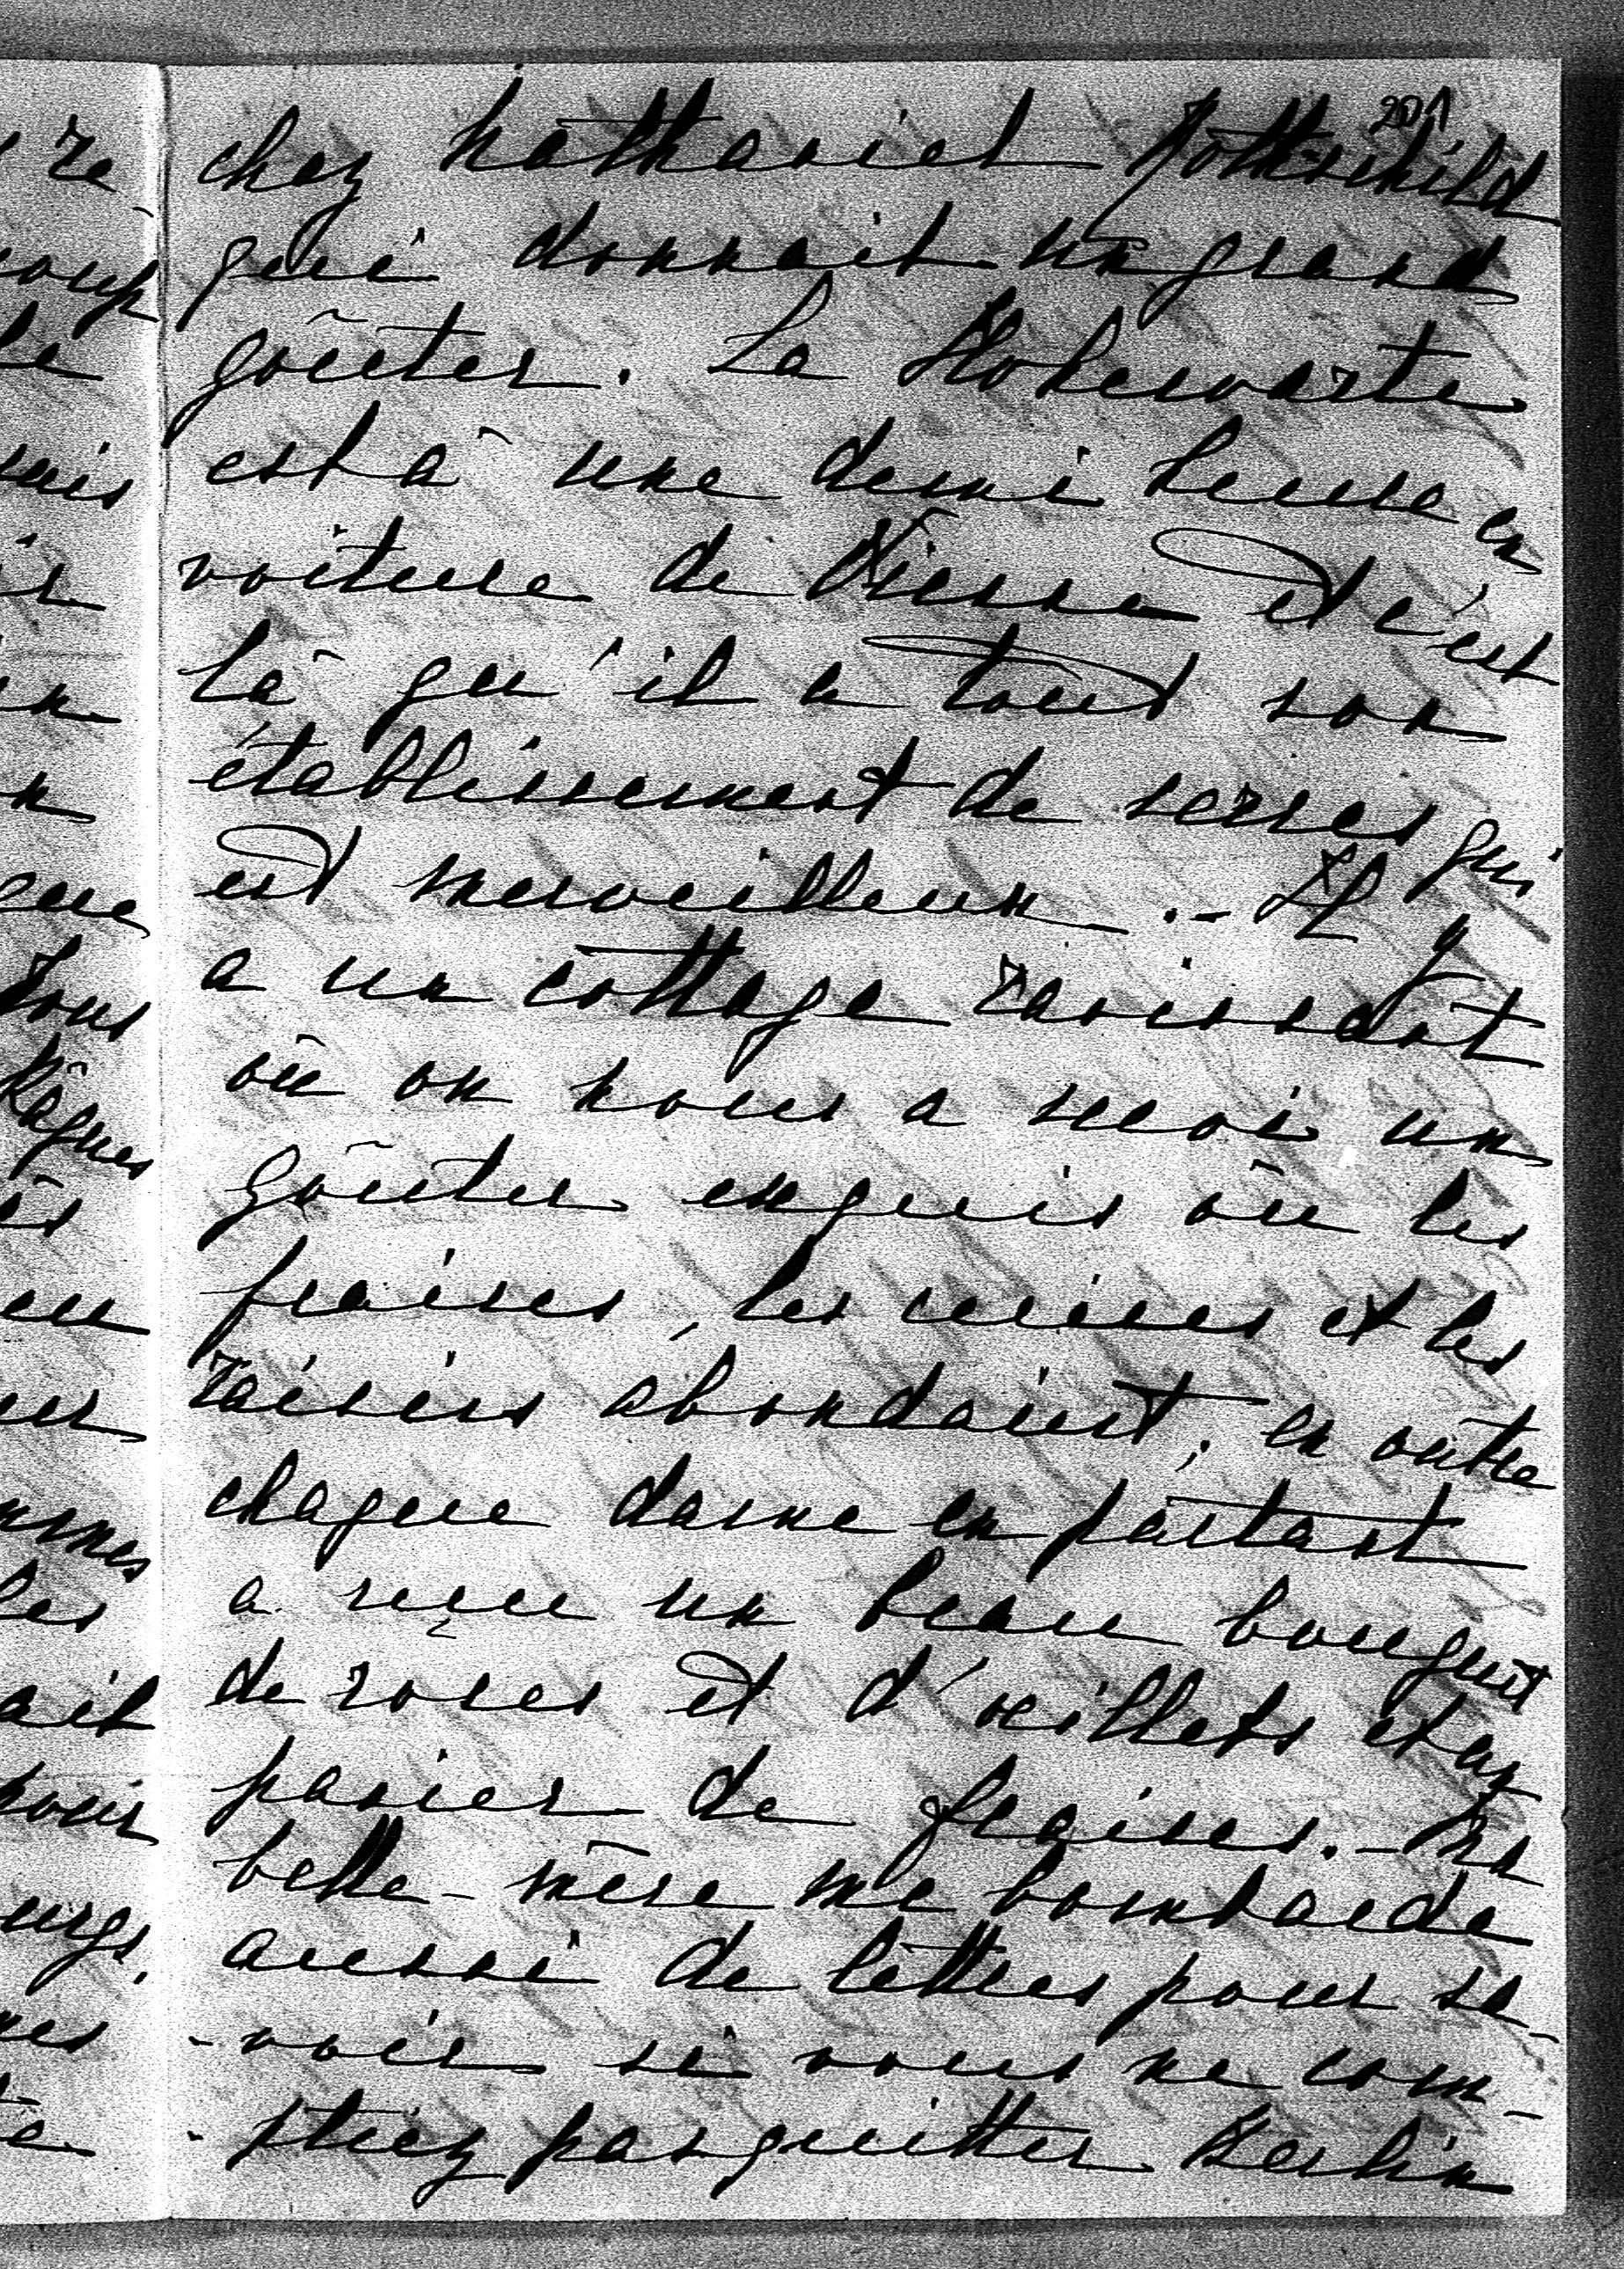 201
chez Nathaniel Rothschild
qui donnait un grand
goûter. La Hohe warte
est à une demi heure en
voiture de Vienne et c'est
là qu'il a tout son
établissement de serres qui
est merveilleux. - Il y
a un cottage ravissant
où on nous a servi un
goûter exquis où les
fraises, les cerises et les
raisins abondaient; en outre
chaque dame en partant
a reçu un beau bouquet
de roses et d'oeillets et un
panier de fraises. - Ma
belle-mère me bombarde
aussi de lettres pour sa-
-voir si vous ne com-
-ptiez pas quitter Berlin